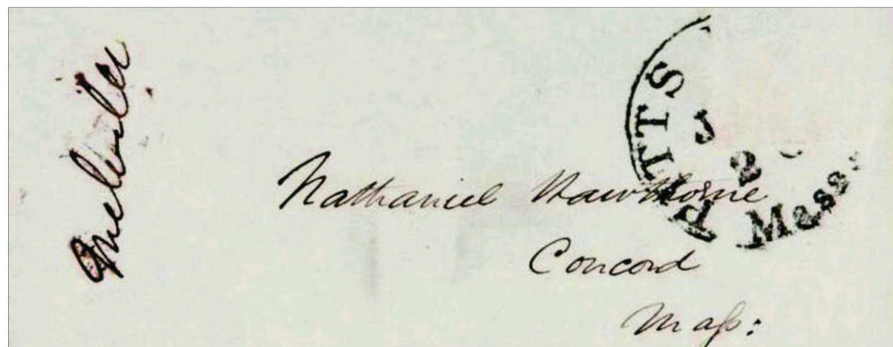 Melville
Nathaniel Hawthorne
Concord
Mass:
PITTS
Mass.